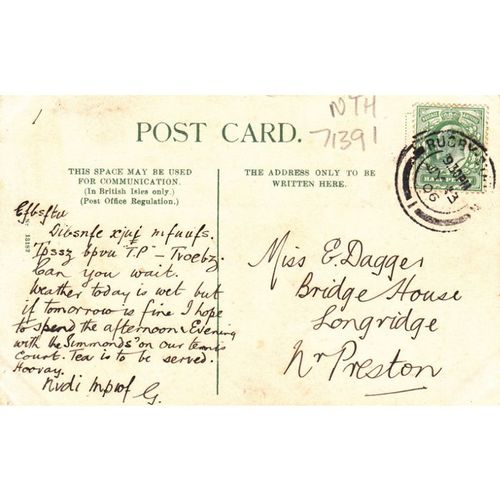 1
NTH
71391
POST CARD.
THIS SPACE MAY BE USED
FOR COMMUNICATION.
(In British Isles only.)
(Post Office Regulation.)
THE ADDRESS ONLY TO BE
WRITTEN HERE.
13
06
Efbsftu
Dibsnfe xjui mfuufs.
Tpssz bpvu T.P – Tvoebz.
Can you wait.
Weather today is wet but
if tomorrow is fine I hope
to spend the afternoon & Evening
with the "Simmonds" on our tennis
Court. Tea is to be served.
Hooray.
Nvdi mpwf G.
Miss E. Dagger
Bridge House
Longridge
Nr Preston